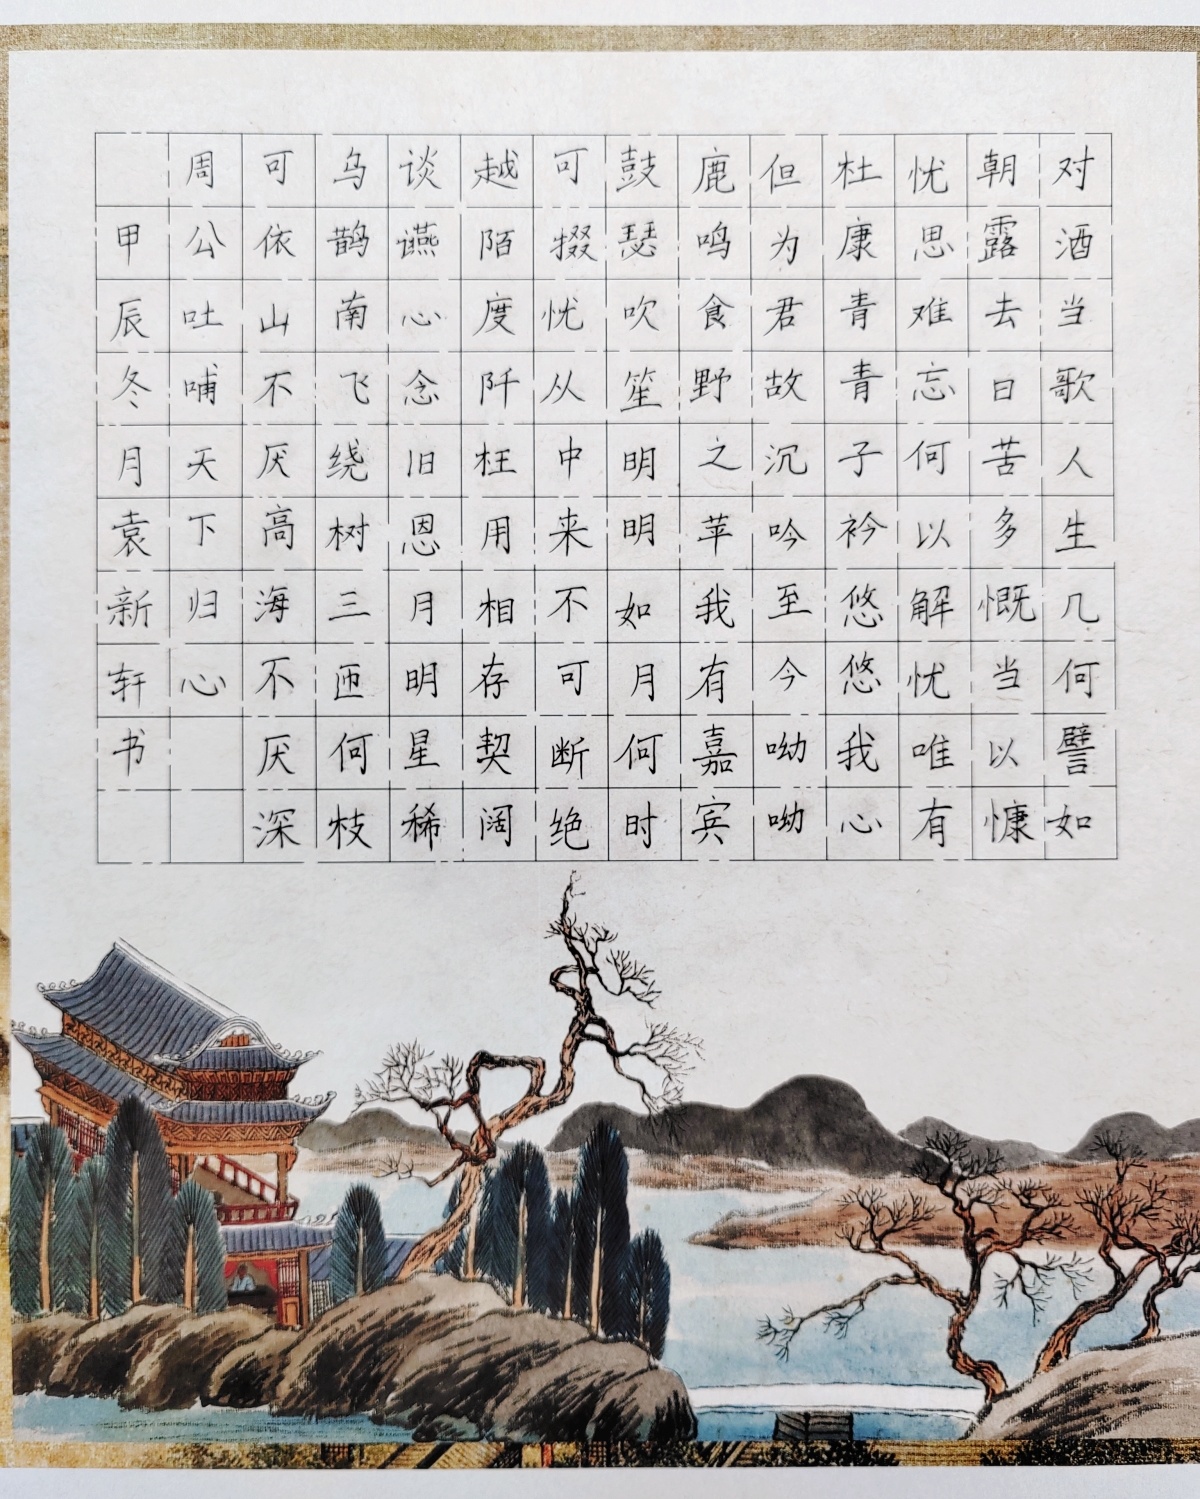 对酒当歌人生几何譬如
朝露去日苦多慨当以慷
忧思难忘何以解忧唯有
杜康青青子衿悠悠我心
但为君故沉吟至今呦呦
鹿鸣食野之苹我有嘉宾
鼓瑟吹笙明明如月何时
可掇忧从中来不可断绝
越陌度阡枉用相存契阔
谈䜩心念旧恩月明星稀
乌鹊南飞绕树三匝何枝
可依山不厌高海不厌深
周公吐哺天下归心
甲辰冬月袁新轩书